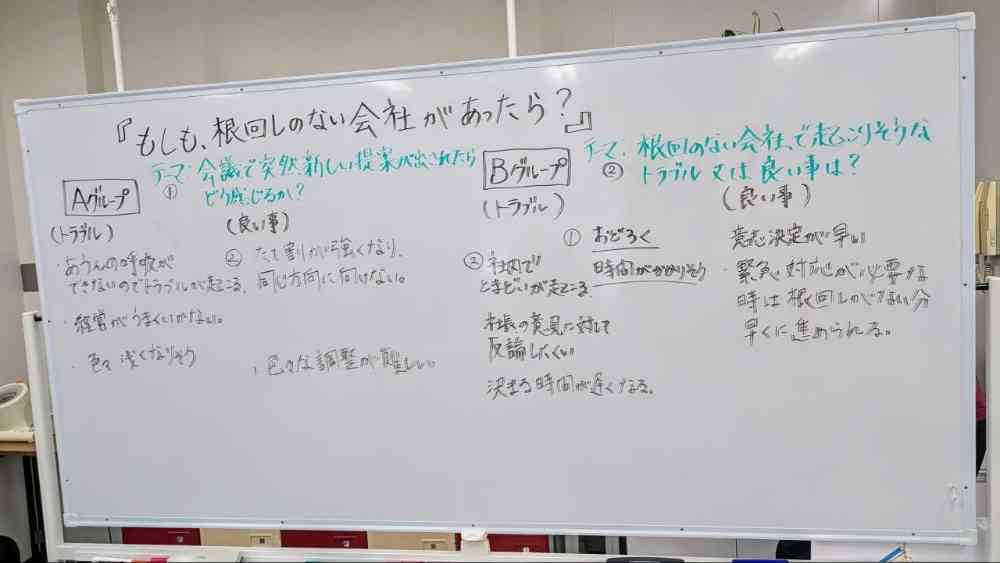 『もしも、根回しのない会社があったら？』
テーマ: 会議で突然、新しい提案が出されたら
①
どう感じるか？
テーマ: 根回しのない会社、で起こりそうな
②
トラブル又は良い事は？
Aグループ
(トラブル)
・あうんの呼吸が
できないのでトラブルが起こる、
・経営がうまくいかない。
・色々 浅くなりそう
(良い事)
② たて割りが強くなり、
同じ方向に向けない。
、色々な調整が難しい。
Bグループ
(トラブル)
① おどろく
時間がかかりそう
② 社内で
とまどいが起こる、
社長の意見に対して
反論しにくい
決まる時間が遅くなる。
(良い事)
意志決定が早い
・緊急、対応が必要な
時は根回しのない分
早くに進められる。